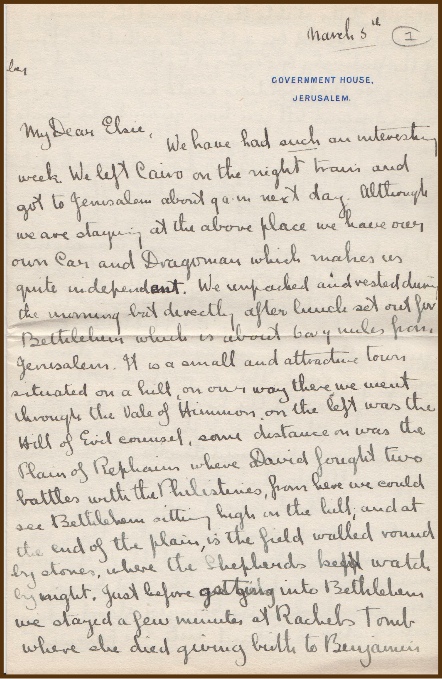 March 5th 1
GOVERNMENT HOUSE,
JERUSALEM.
My Dear Elsie,
We have had such an interesting
week. We left Cairo on the night train and
got to Jerusalem about 9 a.m next day. Although
we are staying at the above place we have our
own Car and Dragoman which makes us
quite independant. We unpacked and rested during
the morning but directly after lunch set out for
Bethlehem which is about 6 or 7 miles from
Jerusalem. It is a small and attractive town
situated on a hill, on our way there we went
through the Vale of Himmon, on the left was the
Hill of Evil counsel, some distance on was the
Plain of Rephaim where David fought two
battles with the Philistines, from here we could
see Bethlehem sitting high on the hill, and at
the end of the plain, is the field walled round
by stones, where the Shepherds kept watch
by night. Just before getting into Bethlehem
we stayed a few minutes at Rachels Tomb
where she died giving birth to Benjamin